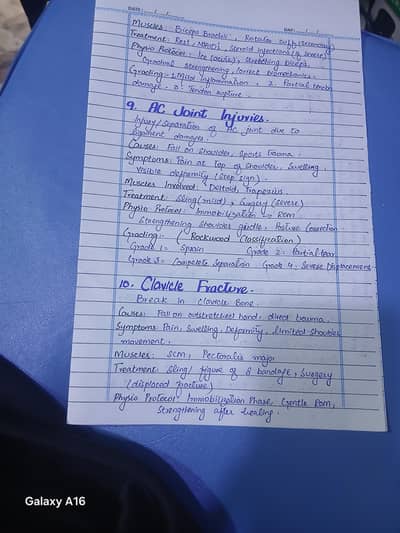 DATE: __/__/__ DAY: __/__/__
Muscles: Biceps Brachii, Rotator Cuff (secondary)
Treatment: Rest, NSAIDs, Steroid injections (if severe)
Physio Protocol: Ice (acute), stretching biceps,
Gradual strengthening, correct biomechanics.
Grading: 1. Mild inflammation, 2. Partial tendon
damage, 3. Tendon rupture.
9. AC Joint Injuries.
Injury/separation of AC joint due to
ligament damage.
Causes: Fall on shoulder, Sports trauma
Symptoms: Pain at top of shoulder, Swelling
Visible deformity (Step sign).
Muscles Involved: Deltoid, Trapezius.
Treatment: Sling (mild), Surgery (severe)
Physio Protocol: Immobilization → ROM
Strengthening shoulder girdle, Posture correction
Grading:- (Rockwood Classification)
Grade 1= Sprain Grade 2= Partial tear
Grade 3= Complete Separation Grade 4= Severe Displacement
10. Clavicle Fracture.
Break in clavicle Bone.
Causes: Fall on outstretched hand, direct trauma.
Symptoms: Pain, Swelling, Deformity, limited shoulder
movement.
Muscles: SCM, Pectoralis major
Treatment: Sling/ figure of 8 bandage, Surgery
(displaced fracture)
Physio Protocol: Immobilization Phase, Gentle ROM,
Strengthening after healing.
Galaxy A16